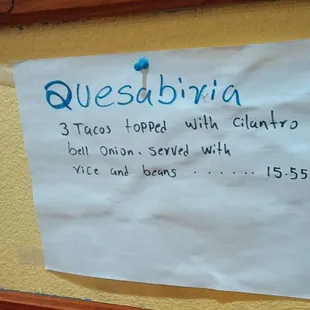 Quesabiria
3 Tacos topped with cilantro
bell onion. served with
rice and beans ...... 15.55